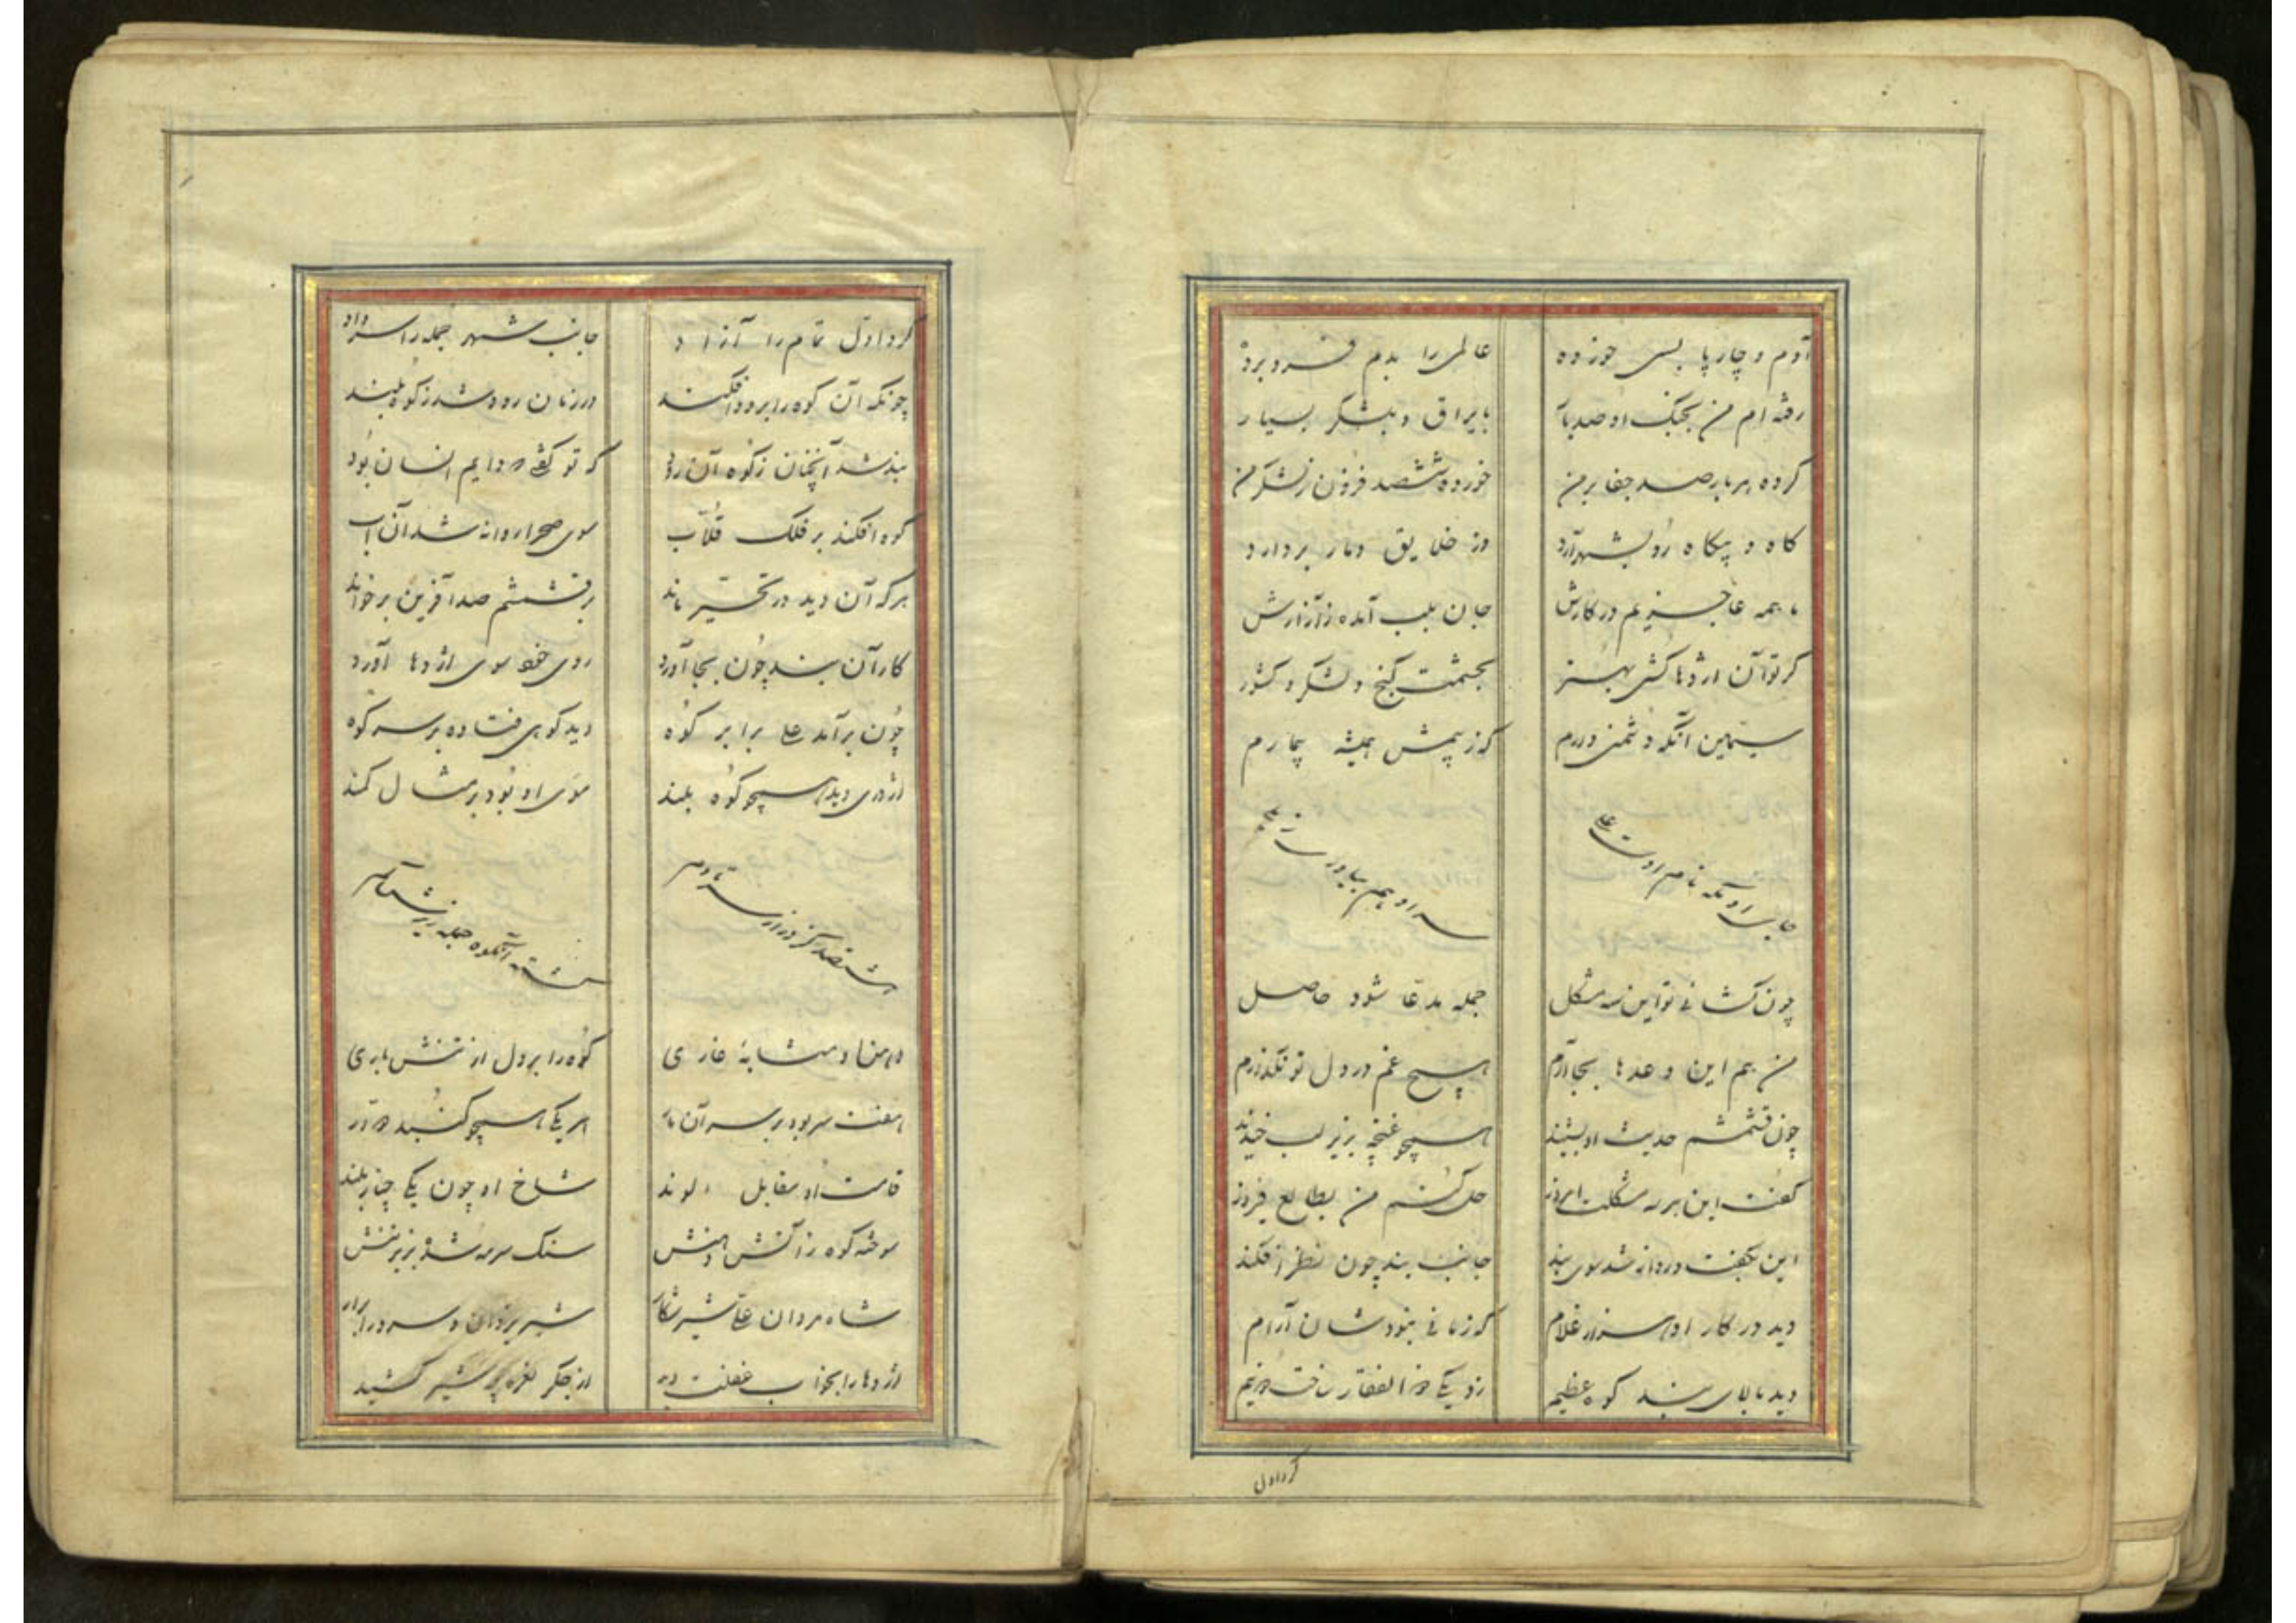 آدم و چارپا بسی خورده
عالمی را بدم فرو برده
رفته ام من بجنگ او صد بار
با یراق و بلشکر بسیار
کرده هر بار صد جفا بر من
خورده ششصد فزون ز لشکر من
کاه و بیکاه رو بشهر آرد
وز خلایق دمار بردارد
ما همه عاجزیم در کارش
جان بلب آمده ز آزارش
کر تو آن اژدها کشی بهتر
بخشمت کنج و لشکر و کشور
سیمین آنکه دشمنی دارم
که ز بیمش همیشه بیمارم
نام اوست علی
او هم بیاور
چون کشائی تو این سه مشکل
جمله مدعا شود حاصل
من هم این وعدها بجا آرم
هیچ غم در دل تو نکذارم
چون قشمشم حدیث او بشنید
همچو غنچه بزیر لب خندید
کفت این هر سه مشکلت امروز
حل کنم من بطالع فیروز
این بکفت و روانه شد سوی بند
جانب بند چون نظر افکند
دید در کار او هزار غلام
که زمانی نبودشان آرام
دید بالای بند کوه عظیم
زد یکی ذوالفقار ساخت دو نیم
کرد اول
کرد اول تمام را آزاد
جانب شهر جمله را سر داد
چونکه آن کوه را برود افکند
در زمان رود شد ز کوه بلند
بند شد آنچنان ز کوه آن رود
که تو کفتی دایم انسان بود
کوه افکند بر فلک قلاب
سوی صحرا روانه شد آن آب
هر که آن دید در تحیر ماند
بر قشمشم صد آفرین بر خواند
کار آن بند چون بجا آورد
روی خود سوی اژدها آورد
چون برآمد علی برابر کوه
دید کوهی فتاده بر سر کوه
اژدری دید همچو کوه بلند
موی او بود بر مثال کمند
کز دراز
جمله زیر
دهن او مشابه غاری
کوه را بر دل از تنش باری
هفت سر بود بر سر آن مار
هر یکی همچو کنبد
قامت او مقابل الوند
شاخ او چون یکی چنار بلند
سوخته کوه ز آتش دهنش
سنک سرمه شده بزیر تنش
شاه مردان علی شیر شکار
شیر یزدان و سرور ابرار
اژدها را بخواب غفلت دید
از جکر نعره چو شیر کشید